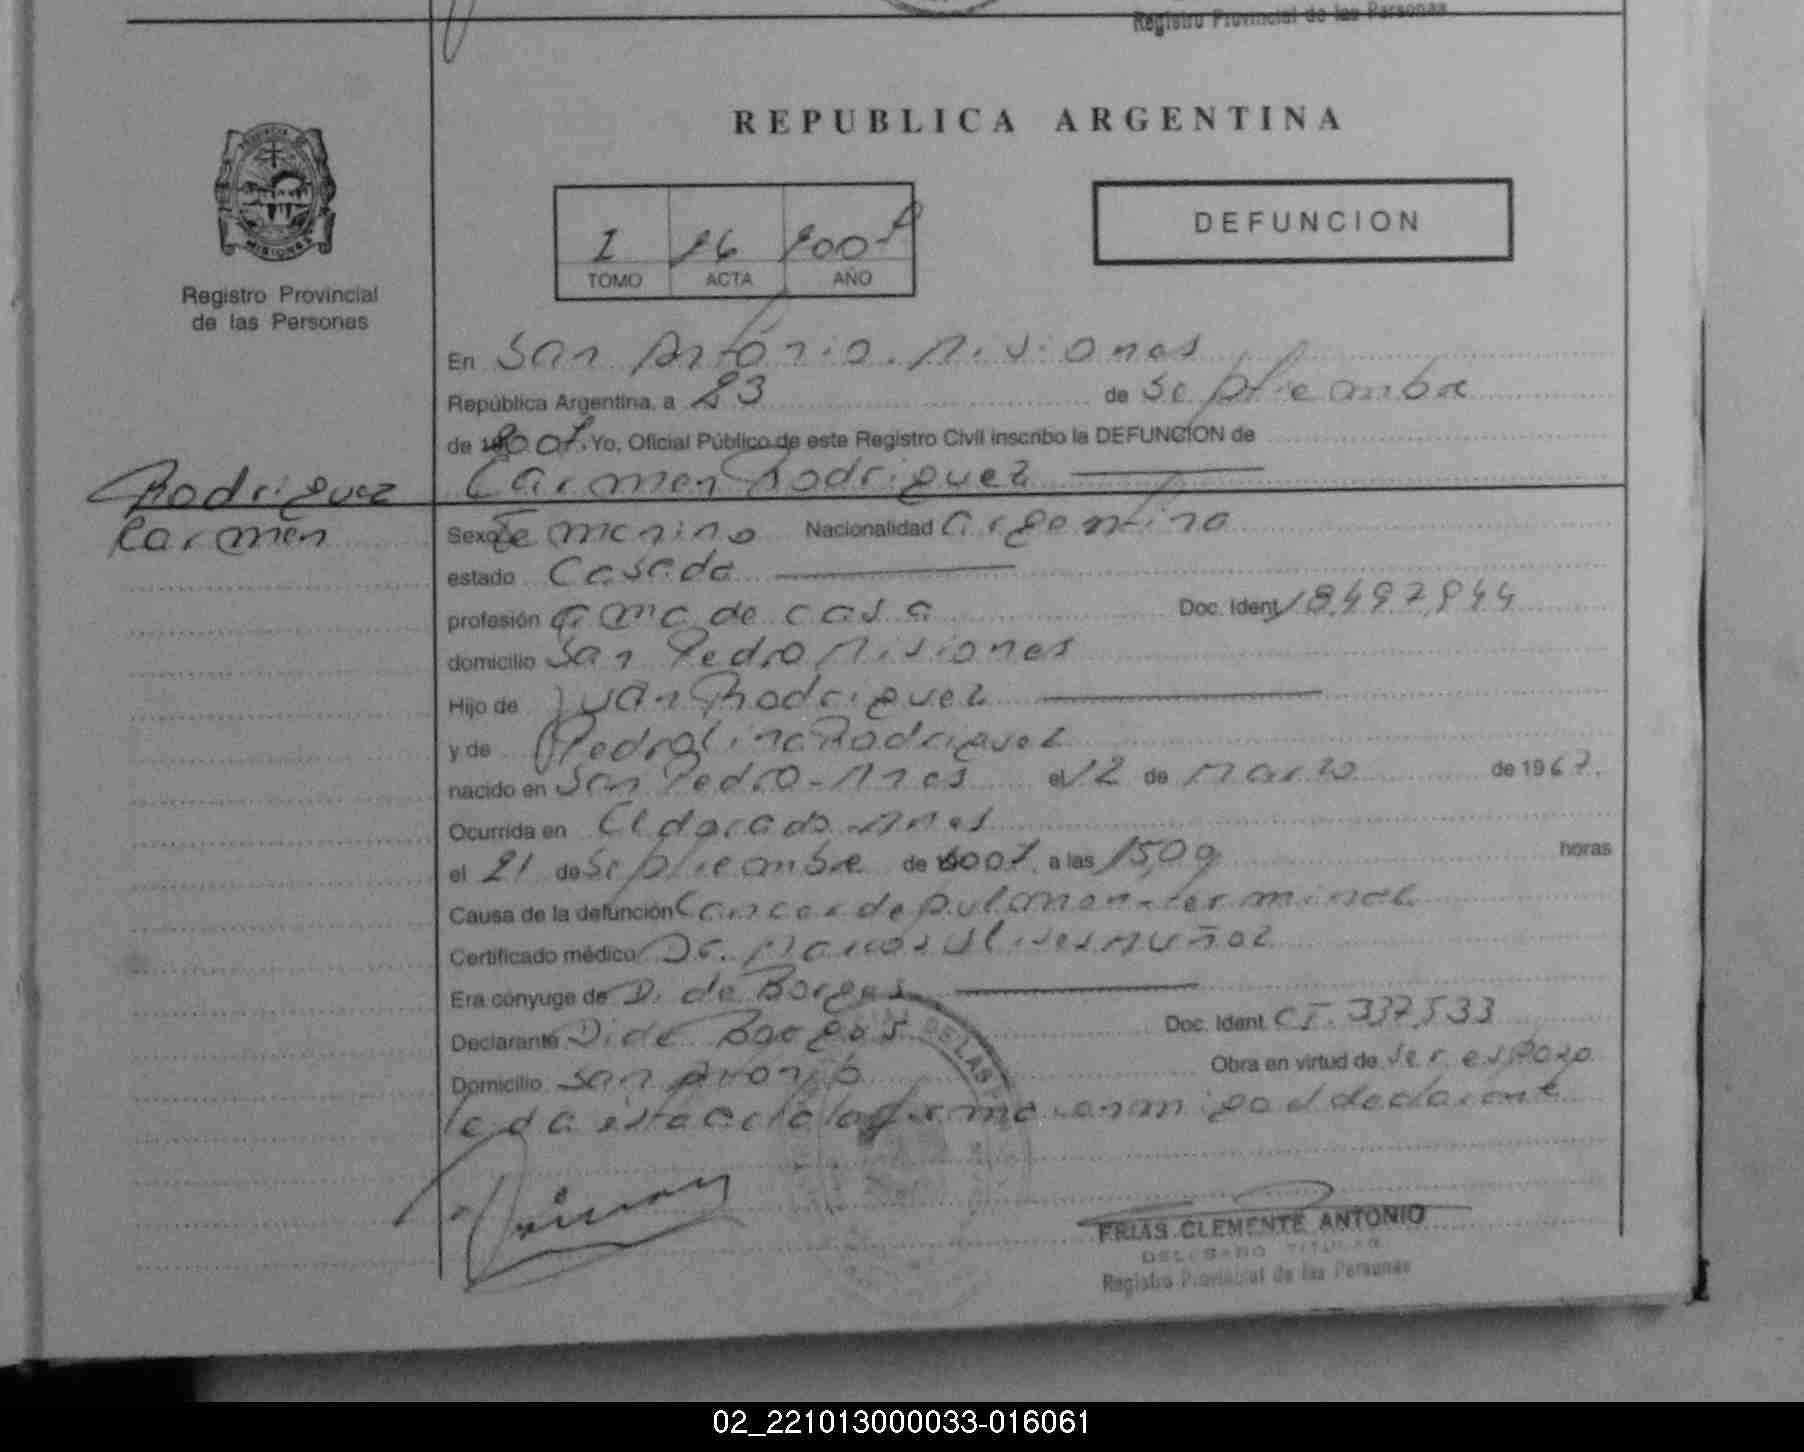 Registro Provincial de las Personas
REPUBLICA ARGENTINA
PROVINCIA DE
MISIONES
Registro Provincial
de las Personas
I 26 2007
TOMO ACTA AÑO
DEFUNCION
En San Antonio. Misiones
República Argentina, a 23 de Septieambre
de 2007. Yo, Oficial Público de este Registro Civil inscribo la DEFUNCION de
Carmen Rodriguez
Rodriguez
Carmen
Sexo Femenino Nacionalidad argentina
estado Casada
profesión ama de casa Doc. Ident 18.497.944
domicilio San Pedro Misiones
Hijo de Juan Rodriguez
y de Pedrolina Rodriguez
nacido en San Pedro - Mnes el 12 de Marzo de 1967.
Ocurrida en Eldorado. Mnes
el 21 de Septieambre de 2007. a las 15,09 horas
Causa de la defunción Cancer de pulmon - terminal
Certificado médico Dr. Marcos Ulises Muñoz
Era cónyuge de D. de Borges
Declarante Di de Borges Doc. Ident. CI. 337,533
Domicilio San Antonio Obra en virtud de ser esposo
Leida esta acta la firma conmigo el declarante
DE LAS
FRIAS CLEMENTE ANTONIO
DELEGADO TITULAR
Registro Provincial de las Personas
02_221013000033-016061